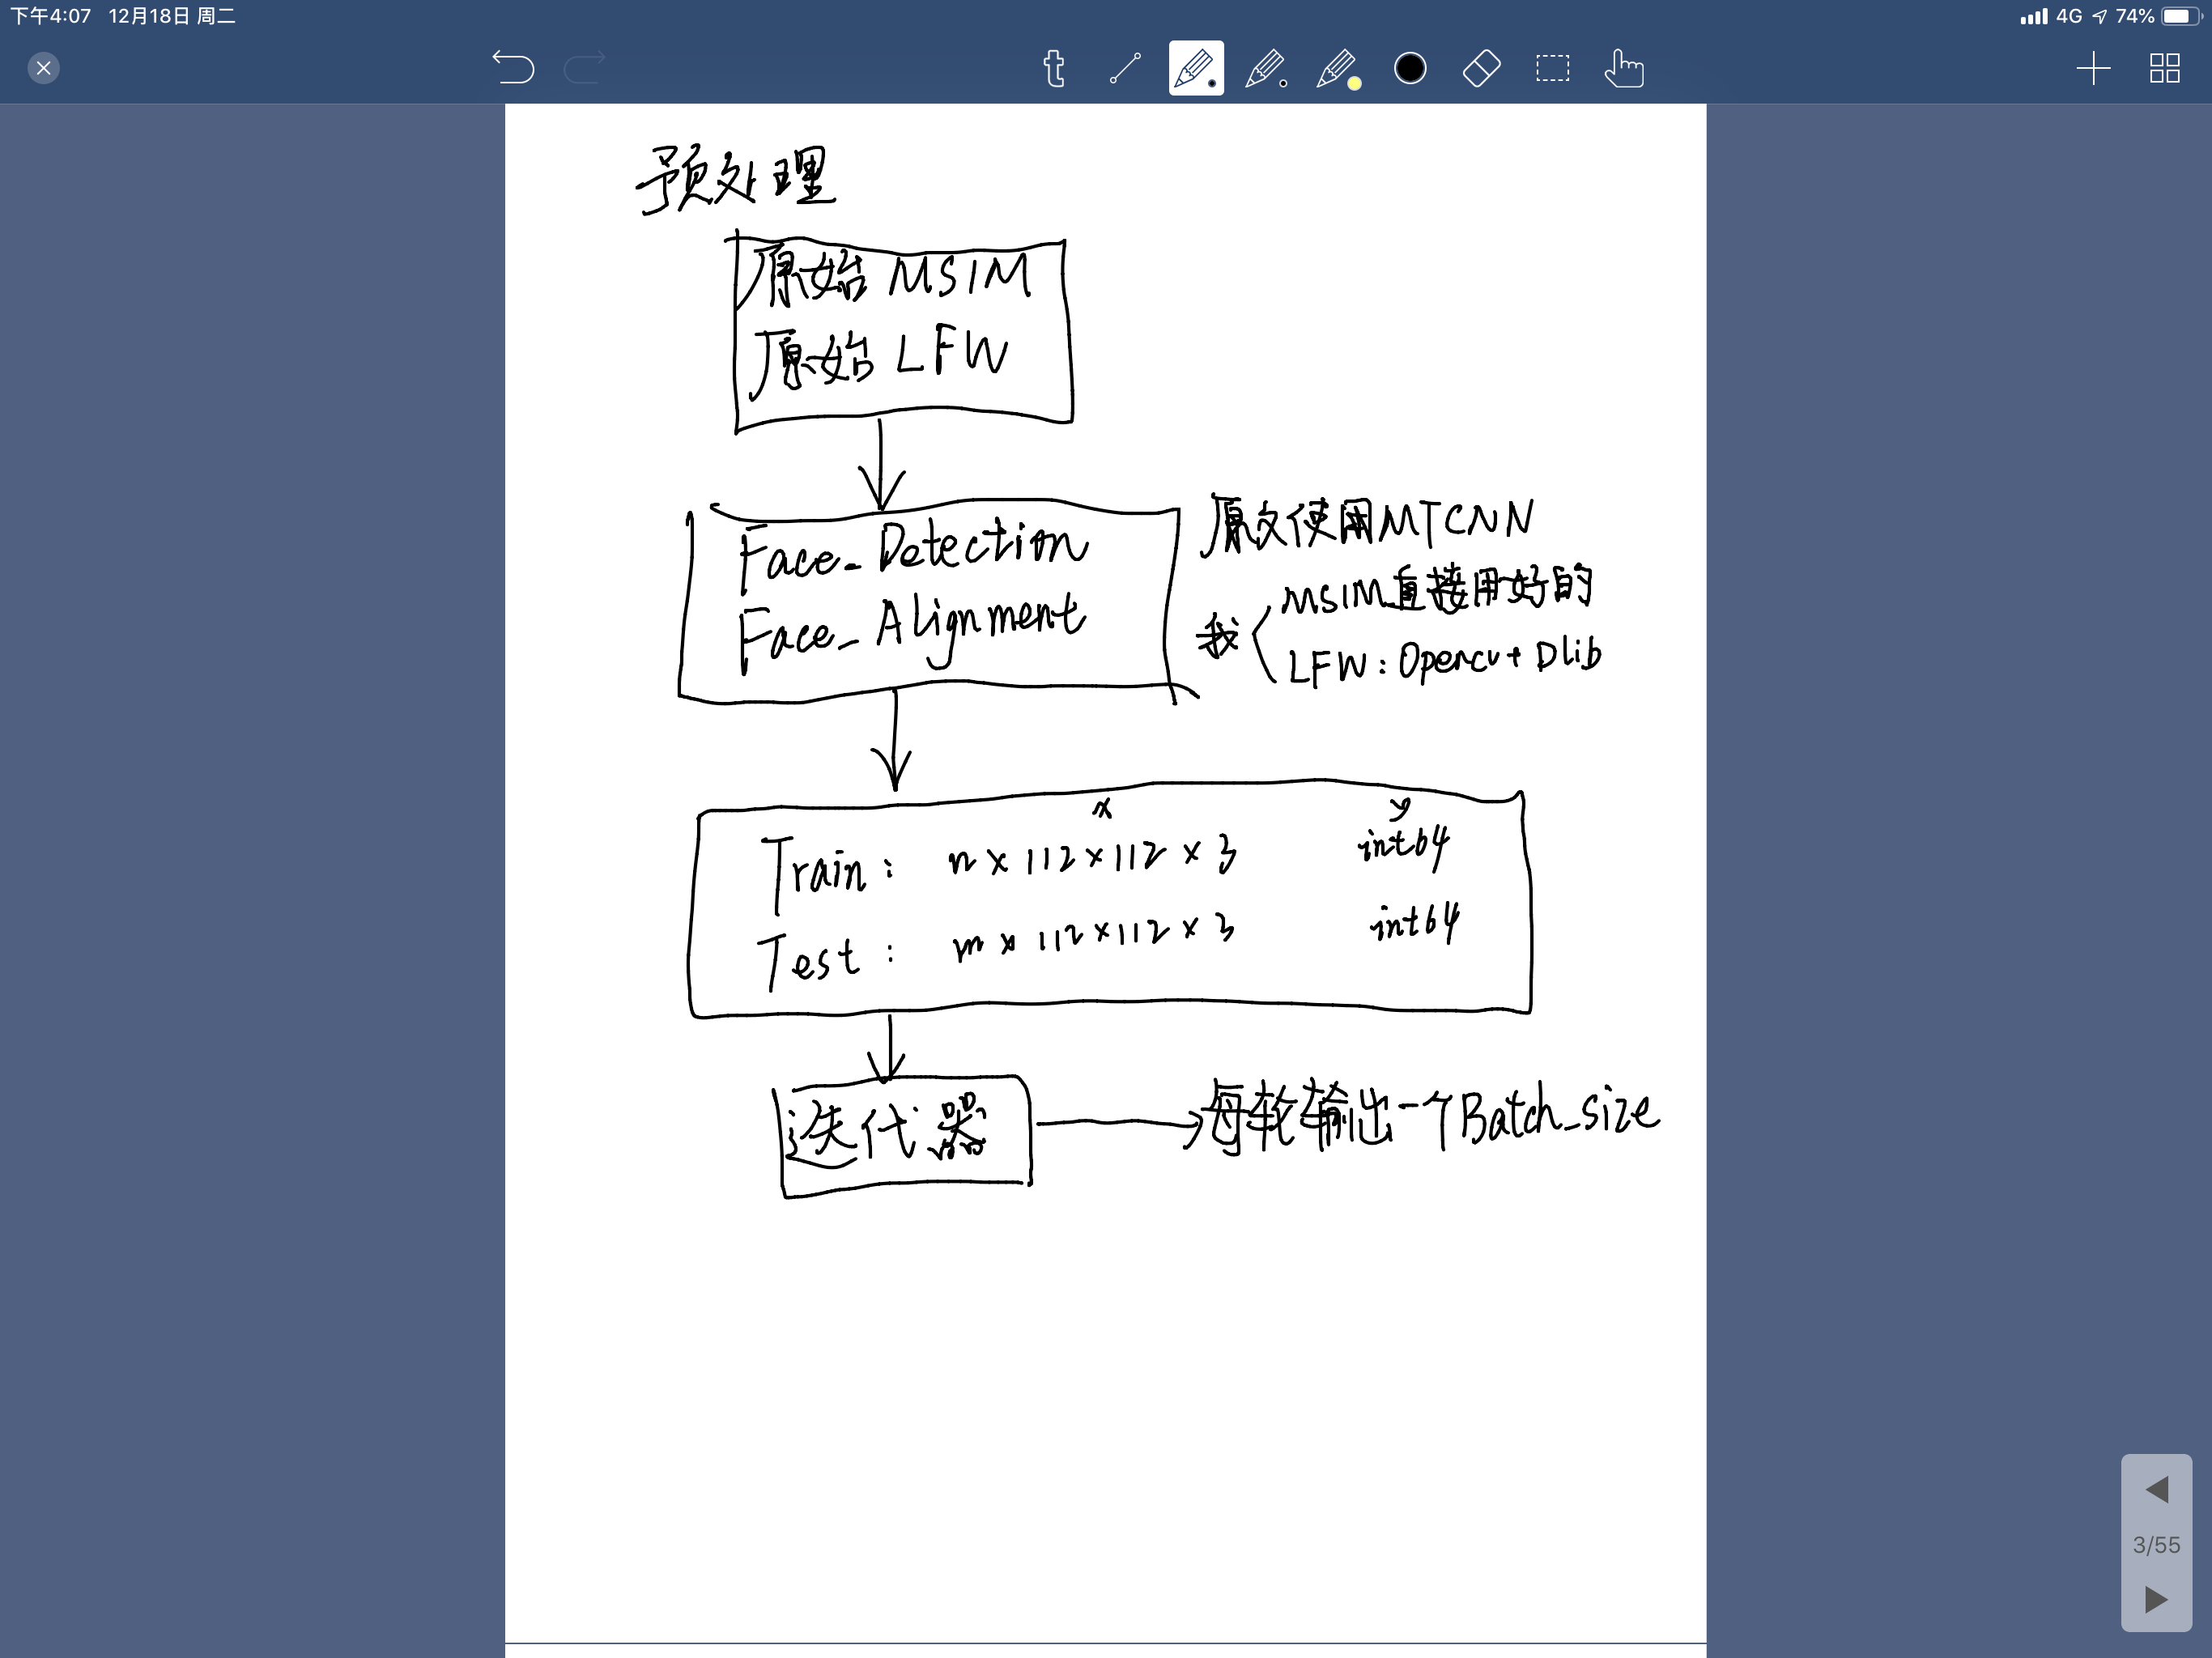 下午4:07 12月18日 周二
4G 74%
t
预处理
原始 MS1M
原始 LFW
Face_Detection
Face_Alignment
原文使用MTCNN
我
MS1M直接用好的
LFW: Opencv+Dlib
x y
Train: n×112×112×3 int64
Test: m×112×112×3 int64
迭代器
每轮输出一个Batch_size
3/55